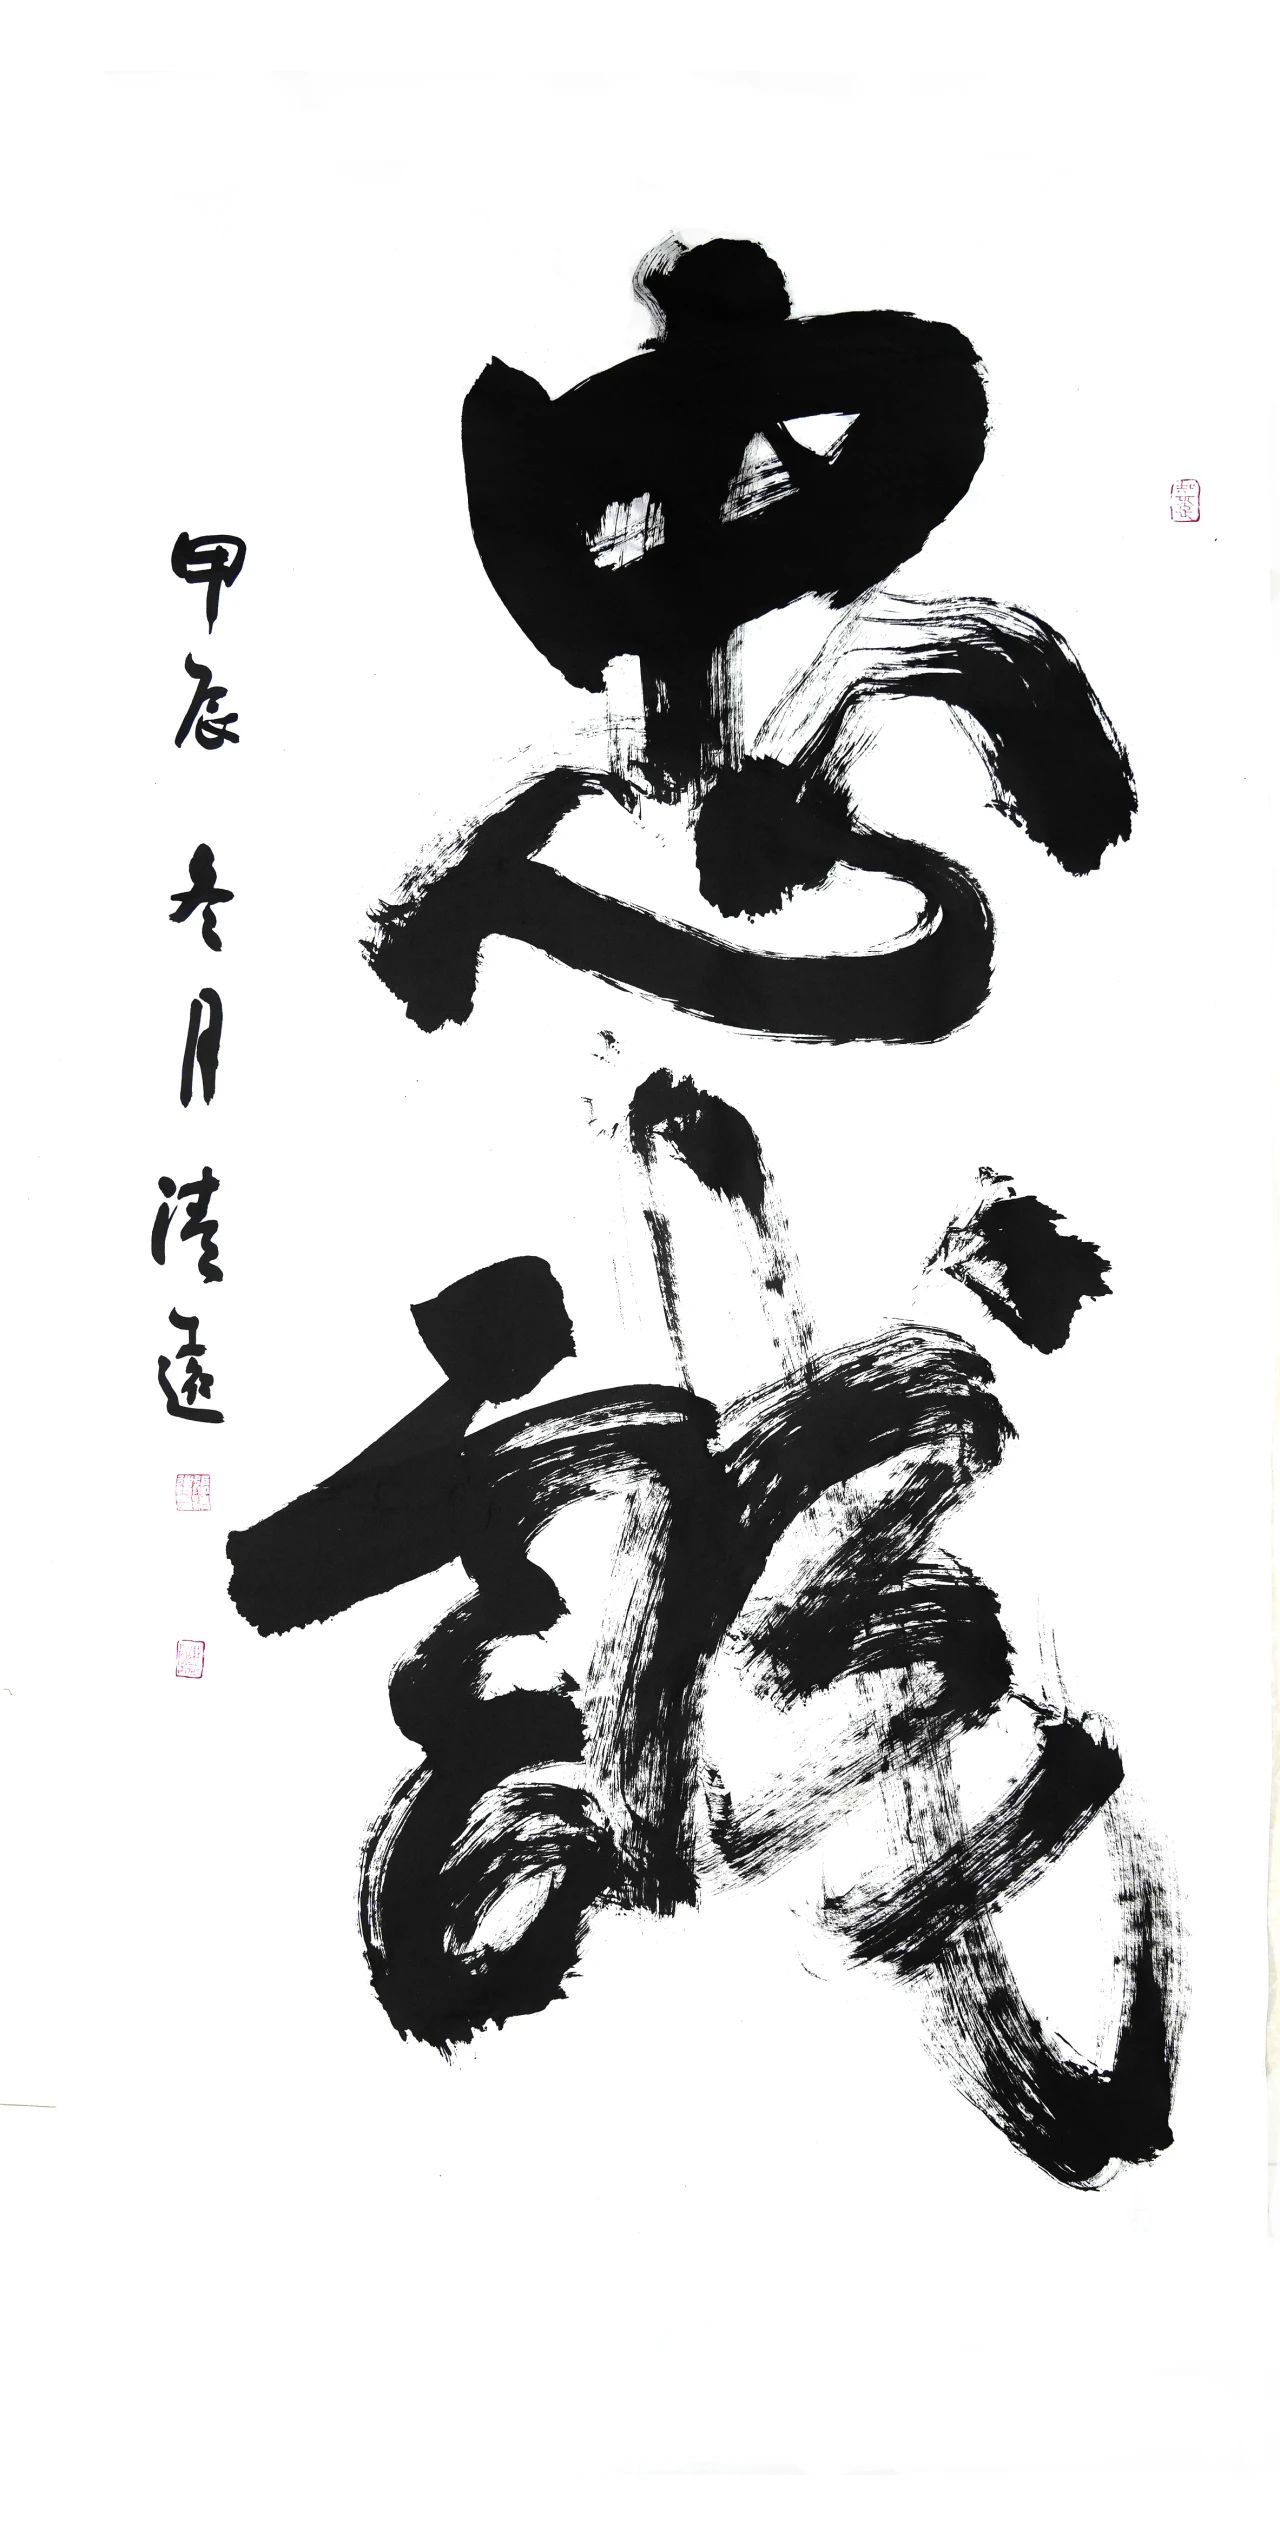 忠誠
甲辰冬月清遠